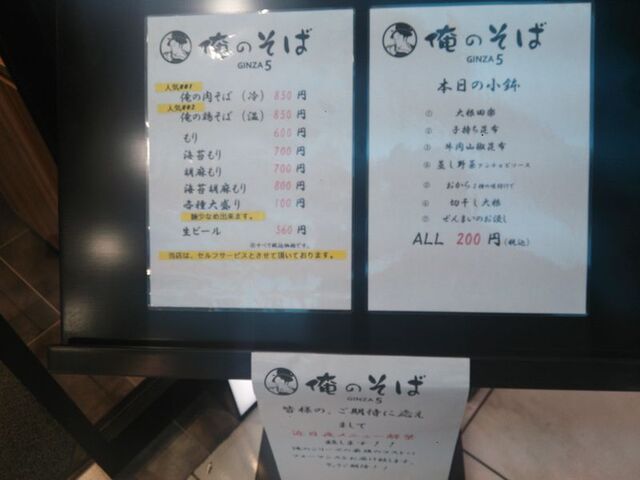 俺のそば
GINZA 5
人気NO1
俺の肉そば（冷） 850円
人気NO2
俺の鶏そば（温） 850円
もり 600円
海苔もり 700円
胡麻もり 700円
海苔胡麻もり 800円
各種大盛り 100円
麺少なめ出来ます。
生ビール 360円
※すべて税込価格です。
当店は、セルフサービスとさせて頂いております。
俺のそば
GINZA 5
本日の小鉢
① 大根田楽
② 子持ち昆布
③ 牛肉山椒昆布
④ 蒸し野菜アンチョビソース
⑤ おから2種の味付けで
⑥ 切干し大根
⑦ ぜんまいのお浸し
ALL 200円（税込）
俺のそば
GINZA 5
皆様の、ご期待に応え
まして
近日夜メニュー解禁
致します！！